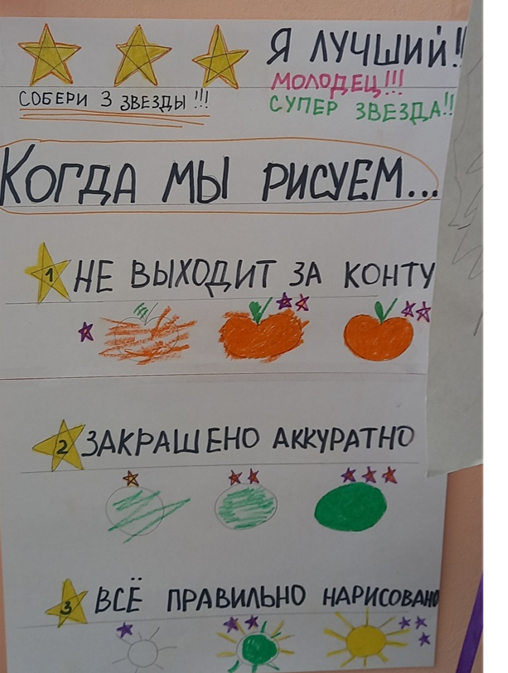 Я ЛУЧШИЙ!!
МОЛОДЕЦ!!!
СУПЕР ЗВЕЗДА!!
СОБЕРИ 3 ЗВЕЗДЫ!!!
КОГДА МЫ РИСУЕМ...
1 НЕ ВЫХОДИТ ЗА КОНТУ
2 ЗАКРАШЕНО АККУРАТНО
3 ВСЁ ПРАВИЛЬНО НАРИСОВАНО